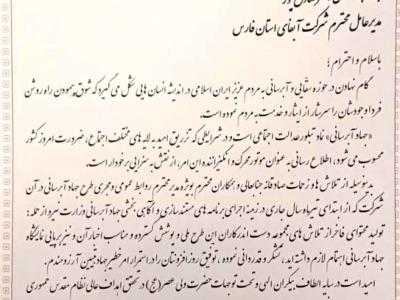 مدیرعامل محترم شرکت آبفای استان فارس
باسلام و احترام ؛
گام نهادن در حوزه سقایی و آبرسانی به مردم عزیز ایران اسلامی در اندیشه انسان هایی شکل می گیرد که شوق پیمودن راه روشن
فردا وجودشان را سرشار از ایثار و خدمت به مردم نموده است.
«جهاد آبرسانی» نماد تبلور عدالت اجتماعی است و در شرایطی که تزریق امید به لایه های مختلف اجتماع، ضرورت امروز کشور
محسوب می شود، اطلاع رسانی به عنوان موتور محرک و انگیزاننده این امر، از نقش به سزایی برخوردار است.
بدینوسیله از تلاش ها و زحمات صادقانه جنابعالی و همکاران محترم بویژه مدیر محترم روابط عمومی و مجری طرح جهاد آبرسانی در آن
شرکت که از ابتدای تیرماه سال جاری در زمینه اجرای برنامه های مستندسازی و آگاهی بخشی جهاد آبرسانی وزارت نیرو از جمله:
تولید محتوای فاخر از تلاش های مجموعه دست اندرکاران این طرح ملی و پوشش گسترده و مناسب اخبار آن و نیز برپایی نمایشگاه
جهاد آبرسانی اهتمام لازم داشته اند، تشکر و قدردانی نموده، توفیق روزافزونتان را در استمرار امر خطیر جهاد تبیین آرزومندم.
امید است در سایه الطاف بیکران الهی و تحت توجهات حضرت ولی عصر (عج) در تحقق اهداف عالی نظام مقدس جمهوری